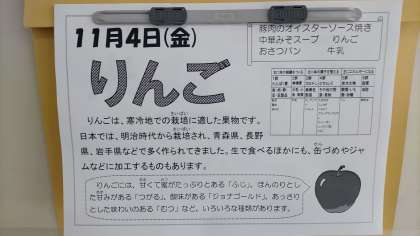 11月4日(金)
豚肉のオイスターソース焼き
中華みそスープ　りんご
おさつパン　　牛乳
りんご
りんごは、寒冷地での栽培に適した果物です。
日本では、明治時代から栽培され、青森県、長野
県、岩手県などで多く作られてきました。生で食べるほかにも、缶づめやジャ
ムなどに加工するものもあります。
りんごには、甘くて蜜がたっぷりとある「ふじ」、ほんのりとし
た甘みがある「つがる」、酸味がある「ジョナゴールド」、あっさり
とした味わいのある「むつ」など、いろいろな種類があります。